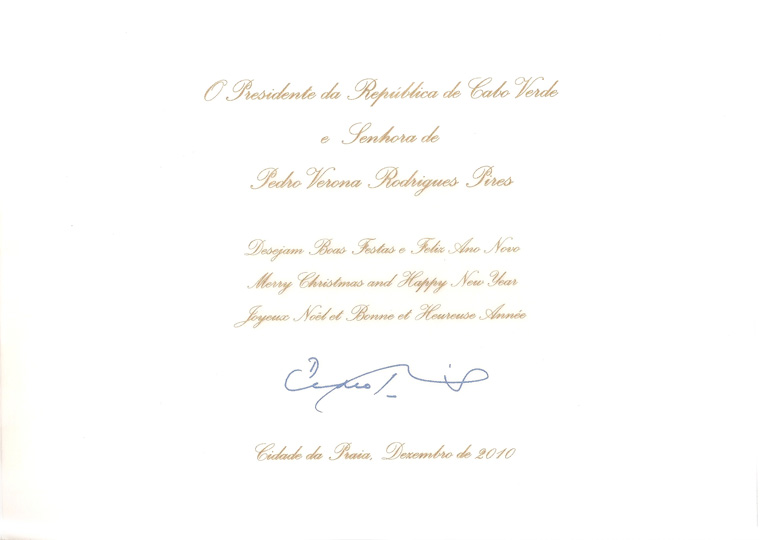 O Presidente da República de Cabo Verde
e Senhora de
Pedro Verona Rodrigues Pires
Desejam Boas Festas e Feliz Ano Novo
Merry Christmas and Happy New Year
Joyeux Noël et Bonne et Heureuse Année
Cidade da Praia, Dezembro de 2010